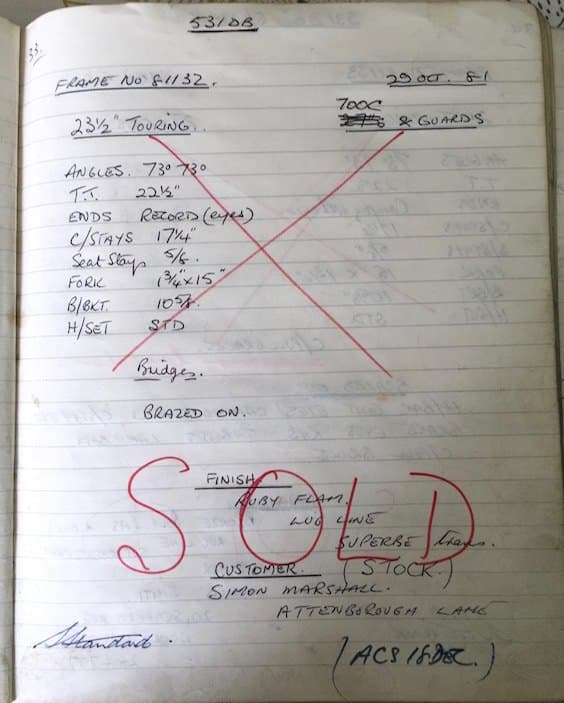 531DB
33.
FRAME NO 81132.
29 OCT. 81
23½" TOURING.
700C
& GUARDS
ANGLES. 73° 73°
T.T. 22½"
ENDS RECORD (eyes)
C/STAYS 17¼"
Seat Stays 5/8.
FORK 1¾" x 15"
B/BKT. 10 5/8.
H/SET STD
Bridges.
BRAZED ON.
SOLD
FINISH
RUBY FLAM.
LUG LINE
SUPERBE trans.
CUSTOMER. (STOCK.)
SIMON MARSHALL.
ATTENBOROUGH LANE
Standard.
(ACS 18 DEC.)